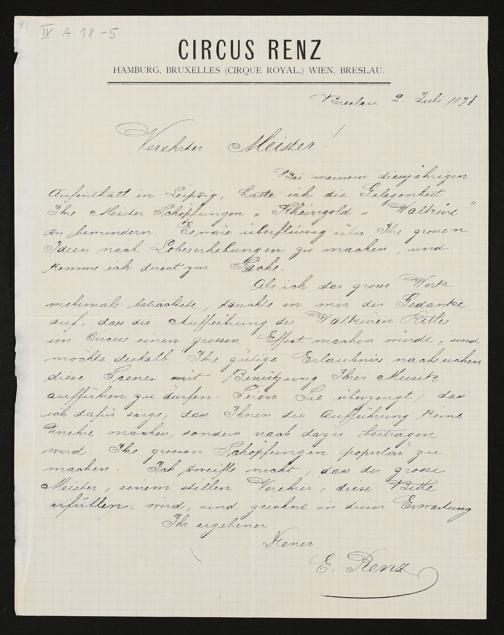 IV A 18-5
CIRCUS RENZ
HAMBURG, BRUXELLES (CIRQUE ROYAL,) WIEN, BRESLAU.
Breslau 2. Juli 1878
Verehrter Meister!
Bei meinem diesjährigen
Aufenthalt in Leipzig, hatte ich die Gelegenheit
Ihre Meister Schöpfungen „Rheingold - "Walküre"
zu bewundern. Es wäre überflüssig über Ihre grossen
Ideen noch Lobeserhebungen zu machen, und
komme ich direct zur Sache.
Als ich das grosse Werk
mehrmals betrachtete, tauchte in mir der Gedanke
auf, dass die Aufführung des Walküren Rittes
im Circus einen grossen Effect machen würde, und
möchte deshalb Ihre gütige Erlaubniss nachsuchen
diese Scene mit Benützung Ihrer Musik
aufführen zu dürfen. Seien Sie überzeugt, das
ich dafür sorge, das Ihnen die Aufführung keine
Unehre machen, sondern noch dazu beitragen
wird Ihre grossen Schöpfungen populär zu
machen. Ich zweifle nicht, das der grosse
Meister, seinem stillen Verehrer, diese Bitte
erfüllen wird, und zeichne in dieser Erwartung
Ihr ergebener
Diener
E. Renz